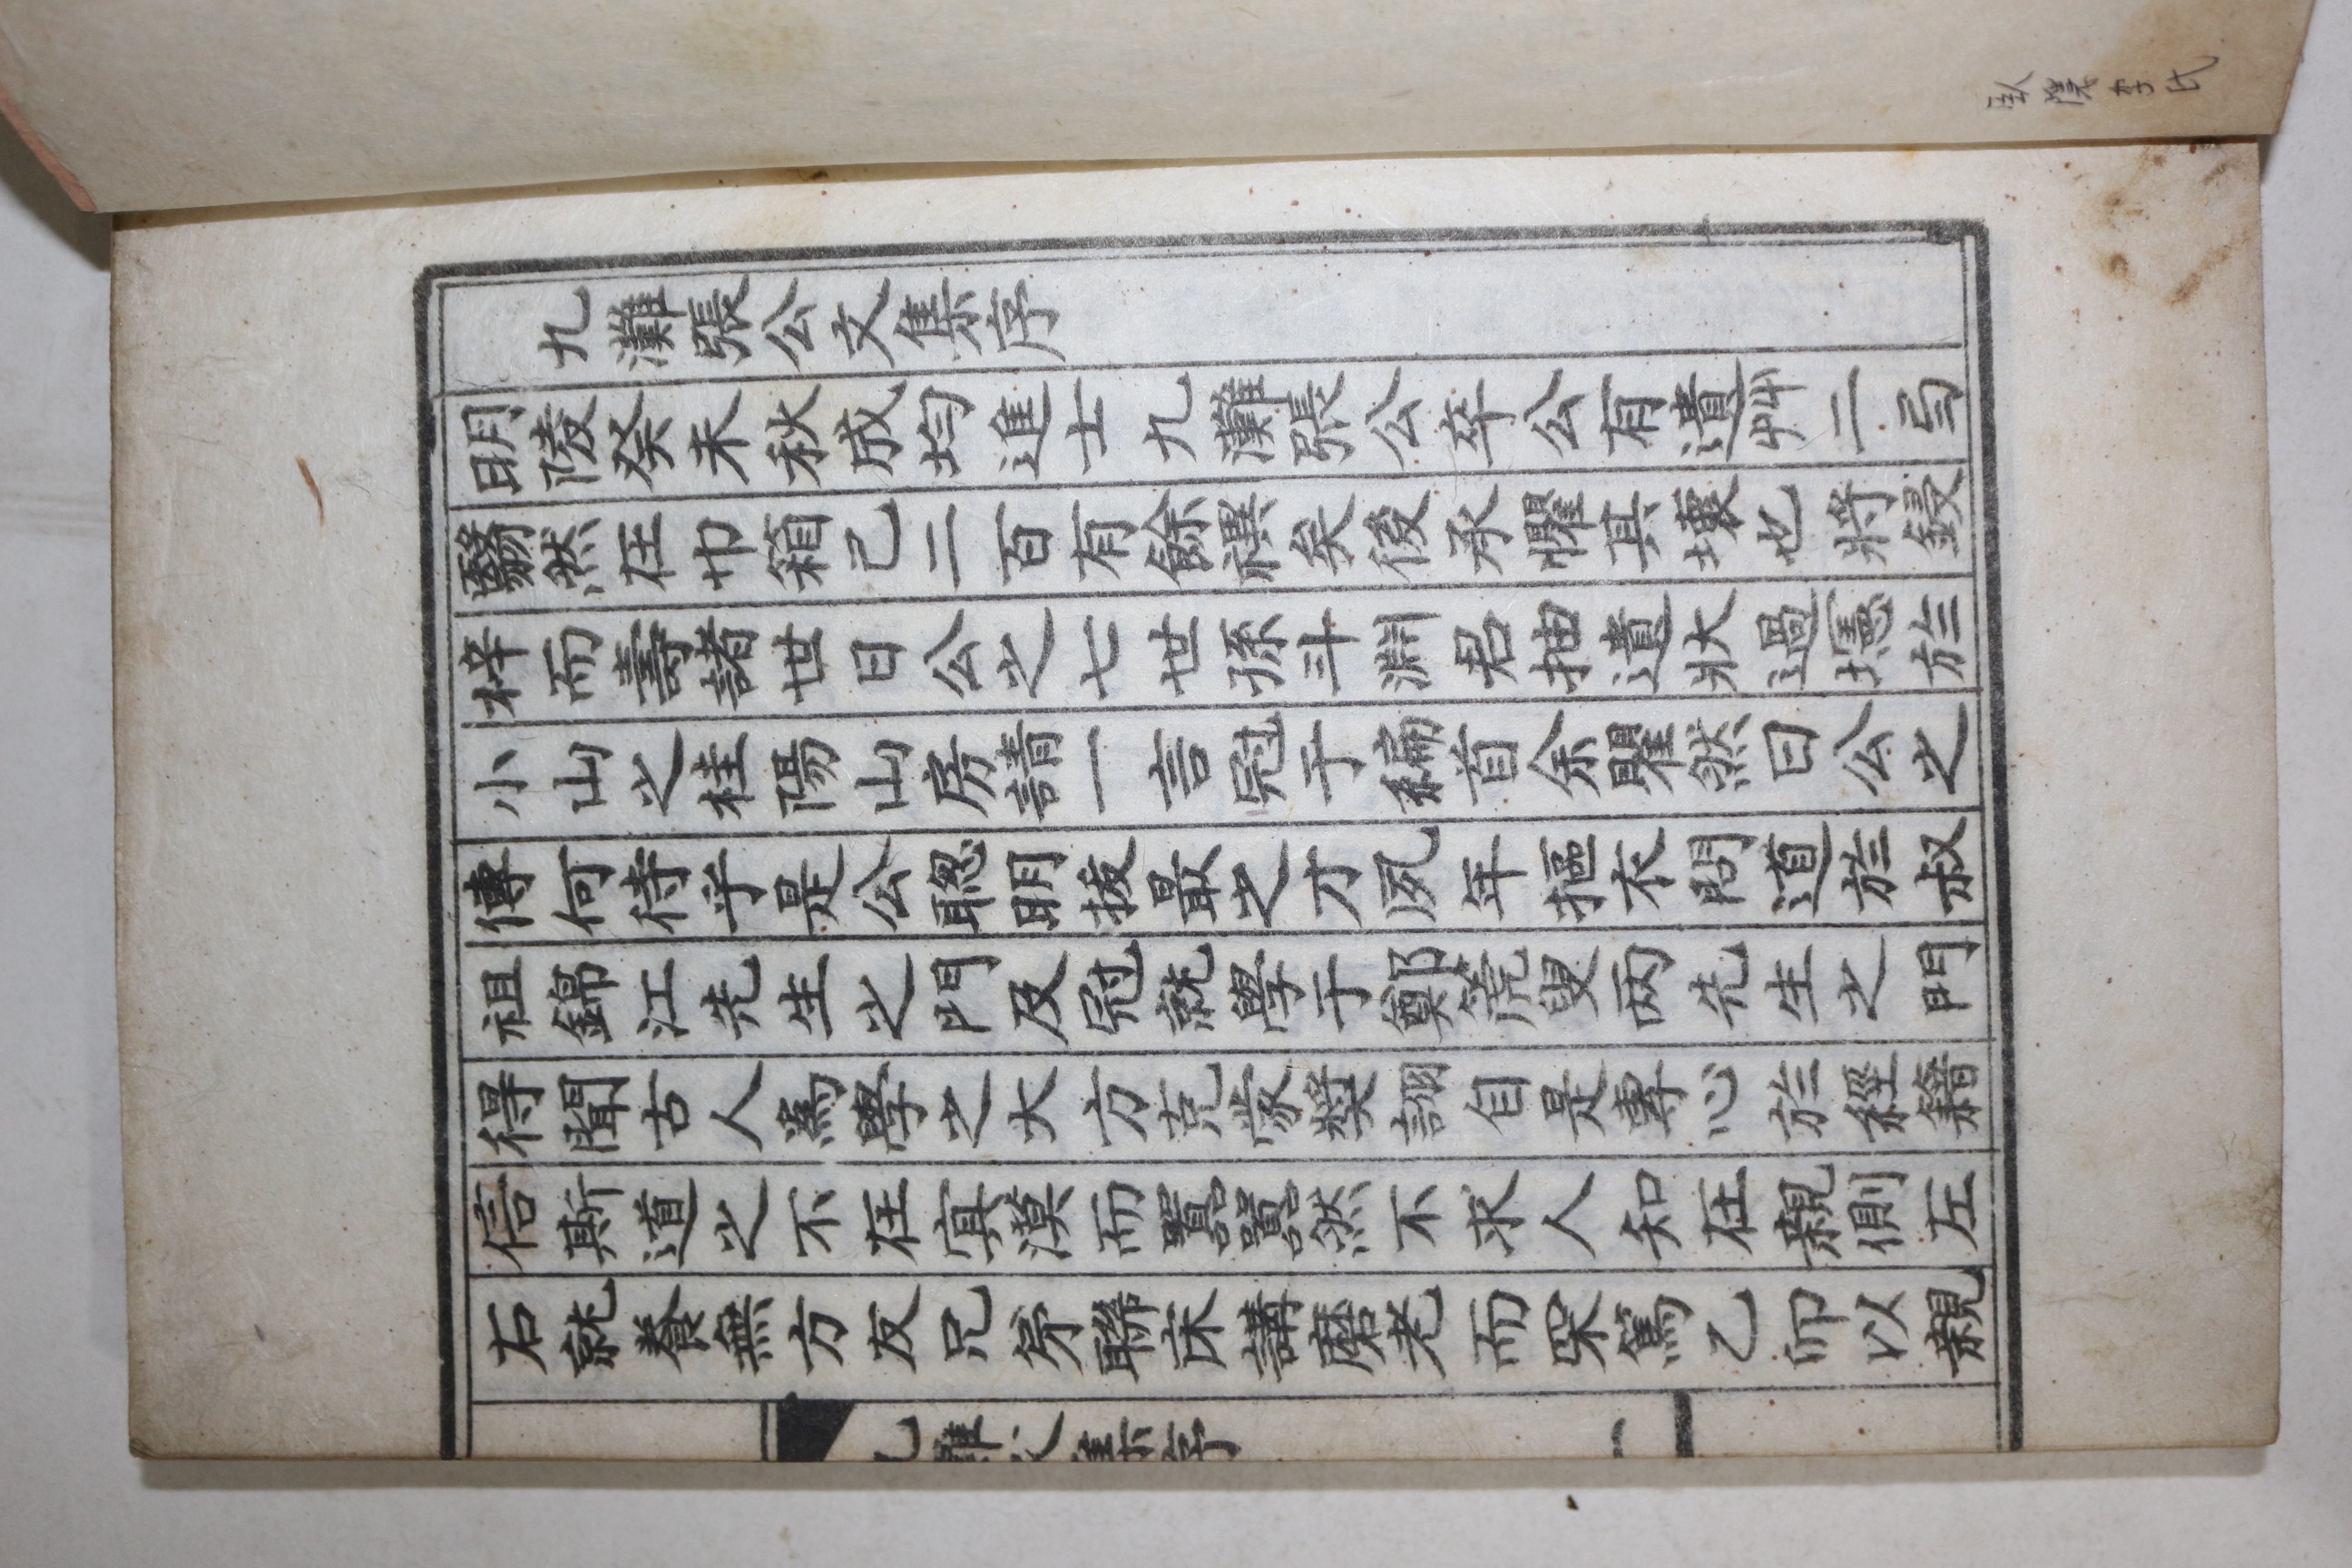 九灘張公文集序
明陵癸未秋成均進士九灘張公卒公有遺艸二弓
翳然在巾箱己二百有餘禩矣後承懼其壞也將鋟
梓而壽諸世日公之七世孫斗淵君抽遺狀過壖於
小山之桂陽山房請一言冠于編首余瞿然曰公之
傳何待乎是公聰明拔最之才夙年摳衣問道於叔
祖錦江先生之門及冠就學于鄭箎叟两先生之門
得聞古人為學之大方克蒙奬詡自是專心於經籍
信斯道之不在寘漠而囂囂然不求人知在親側左
右就養無方友兄弟聯床講磨老而罙篤乙卯以親
九灘文集序
一
臥隱李氏